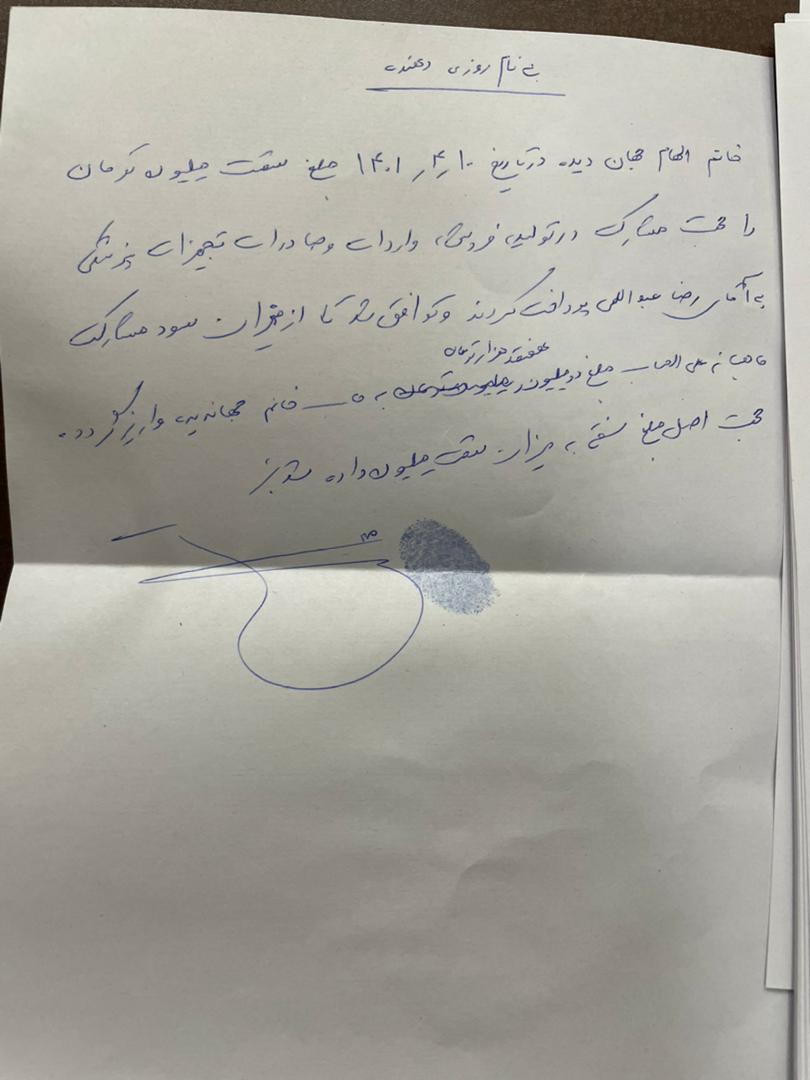 به نام روزی دهنده
خانم الهام جهان دیده در تاریخ ۱۴۰۱٫۴٫۱۰ مبلغ هفت میلیون تومان
را جهت مشارکت در تولید، فروش، واردات و صادرات تجهیزات پزشکی
به آقای رضا عبداللهی پرداخت کردند و توافق شد تا از میزان سود مشارکت
هفتصد هزار تومان
ماهیانه علی الحساب مبلغ به حساب خانم جهاندیده واریز گردد.
جهت اصل مبلغ سفته به میزان هفت میلیون داده شد